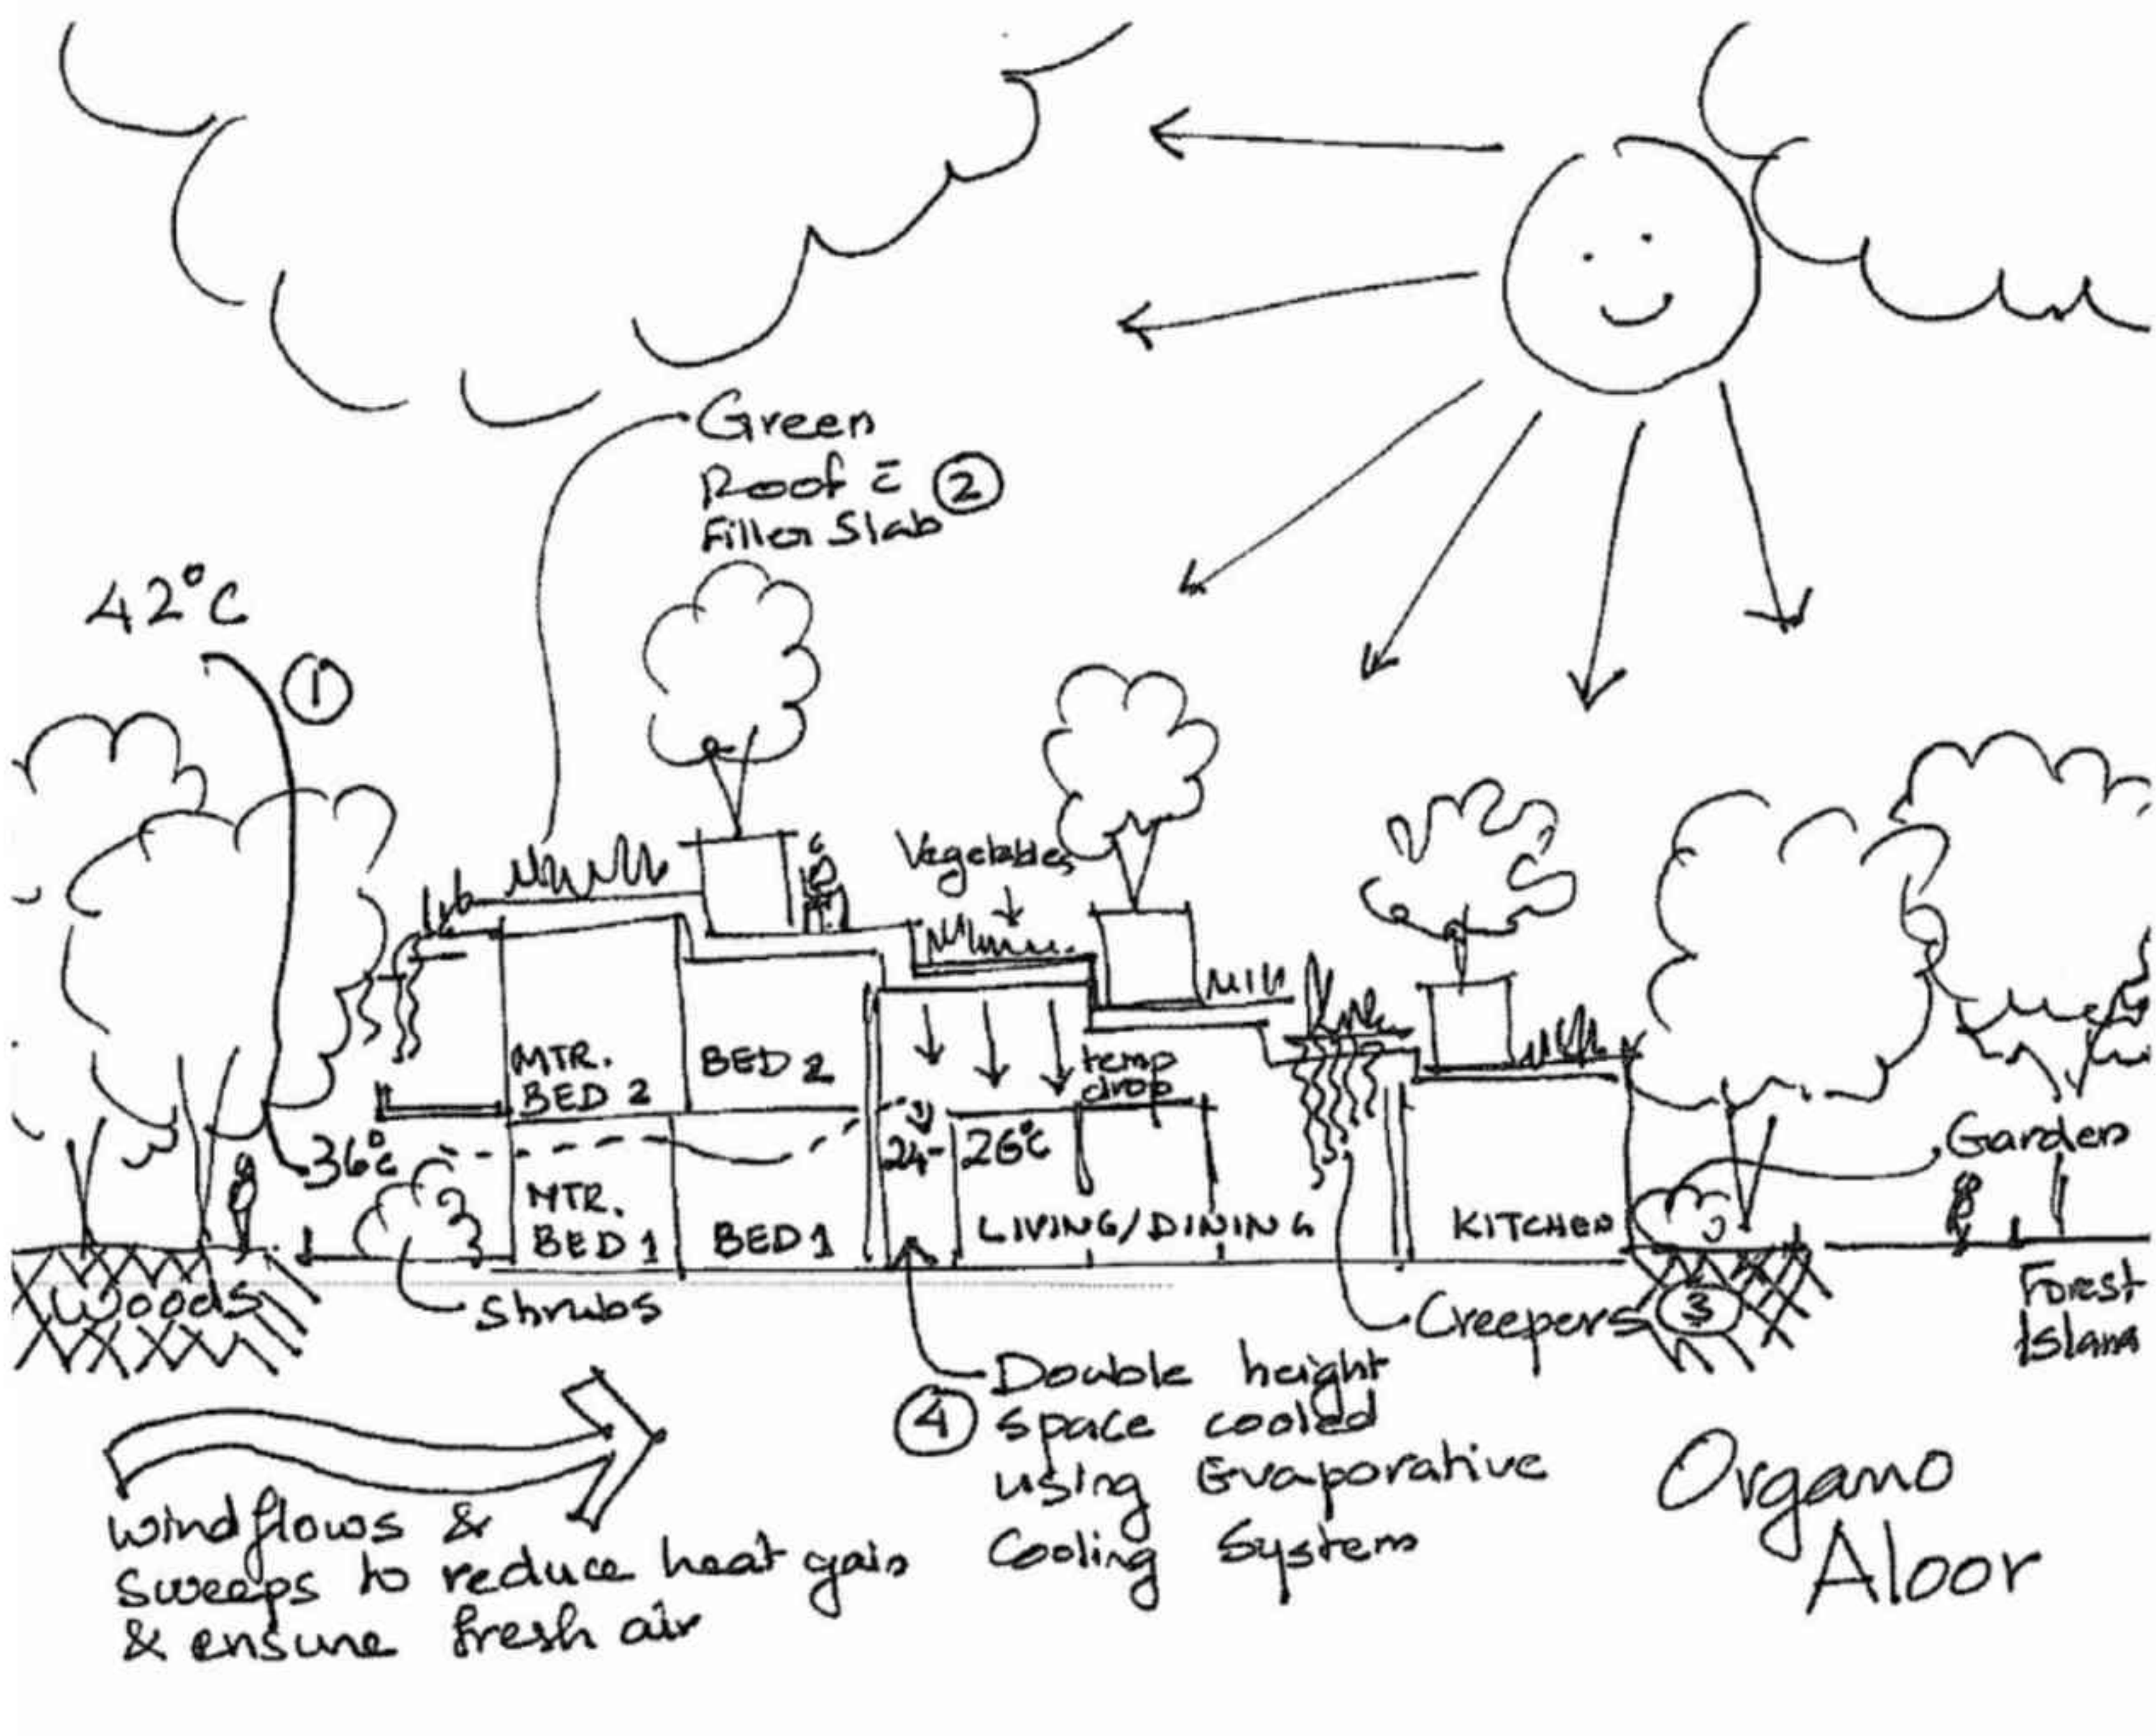 Green
Roof c̄ ②
Filler Slab
42°C
①
Vegetables
MTR.
BED 2
BED 2
temp
drop
36°c
24-26°c
MTR.
BED 1
BED 1
LIVING/DINING
KITCHEN
Garden
Woods
Shrubs
Creepers ③
Forest
Island
④ Double height
space cooled
using Evaporative
Cooling System
windflows &
sweeps to reduce heat gain
& ensure fresh air
Organo
Aloor